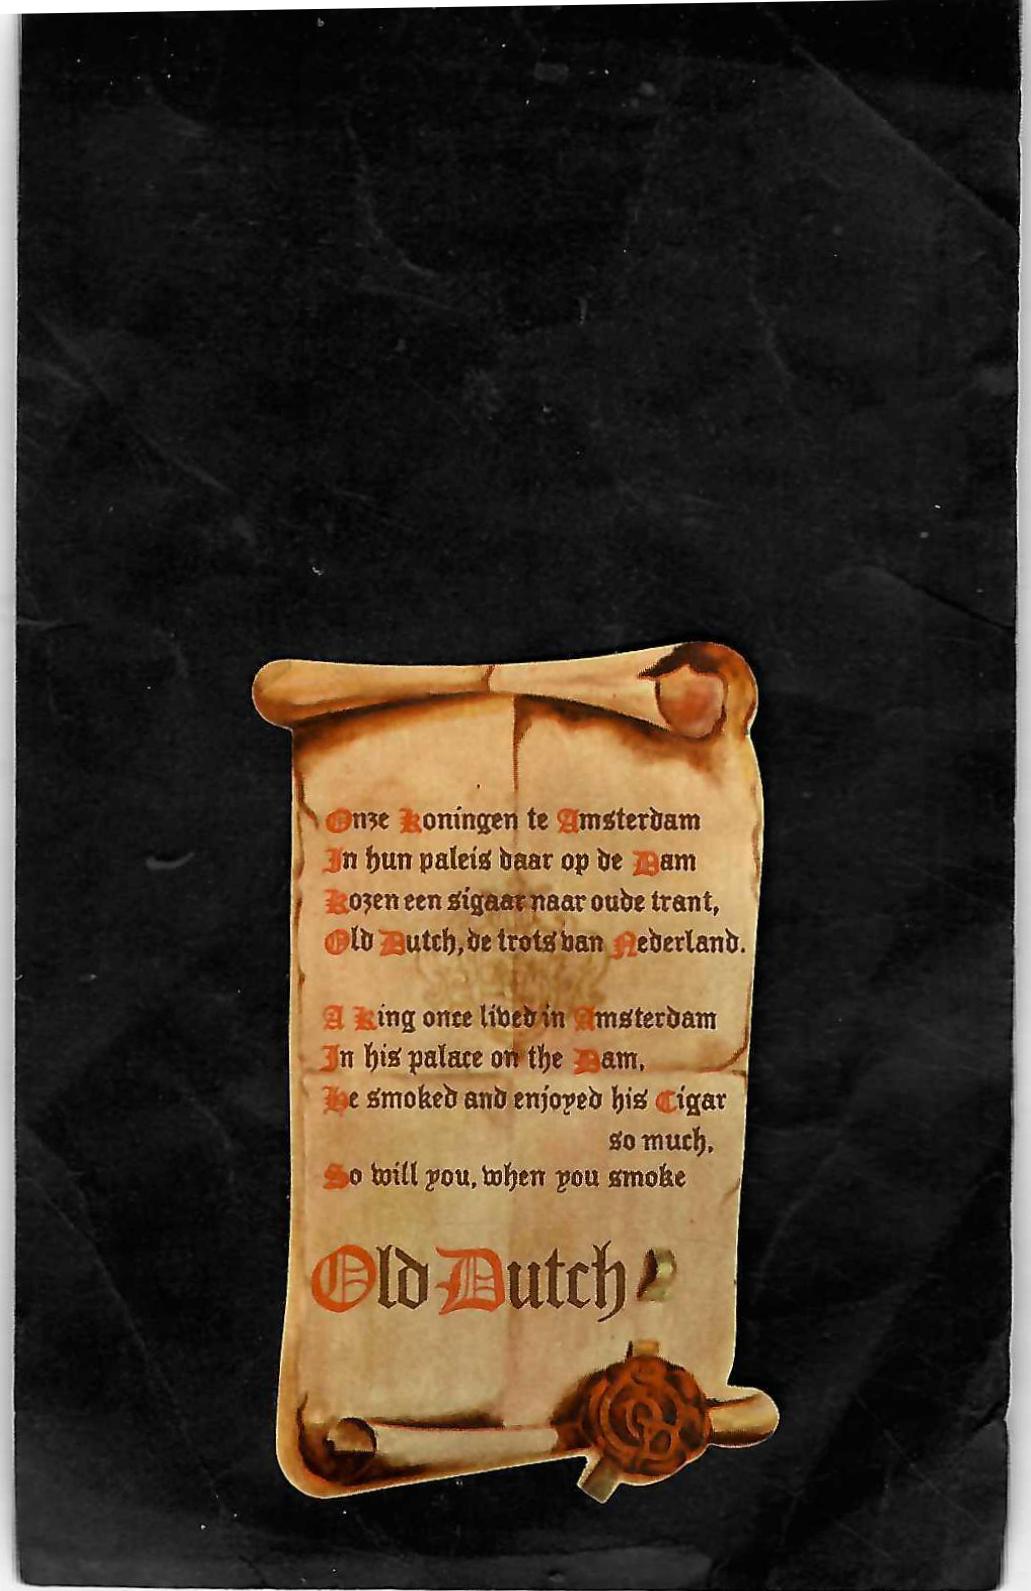 Onze Koningen te Amsterdam
In hun paleis daar op de Dam
Kozen een sigaar naar oude trant,
Old Dutch, de trots van Nederland.
A King once lived in Amsterdam
In his palace on the Dam,
He smoked and enjoyed his Cigar
so much,
So will you, when you smoke
Old Dutch